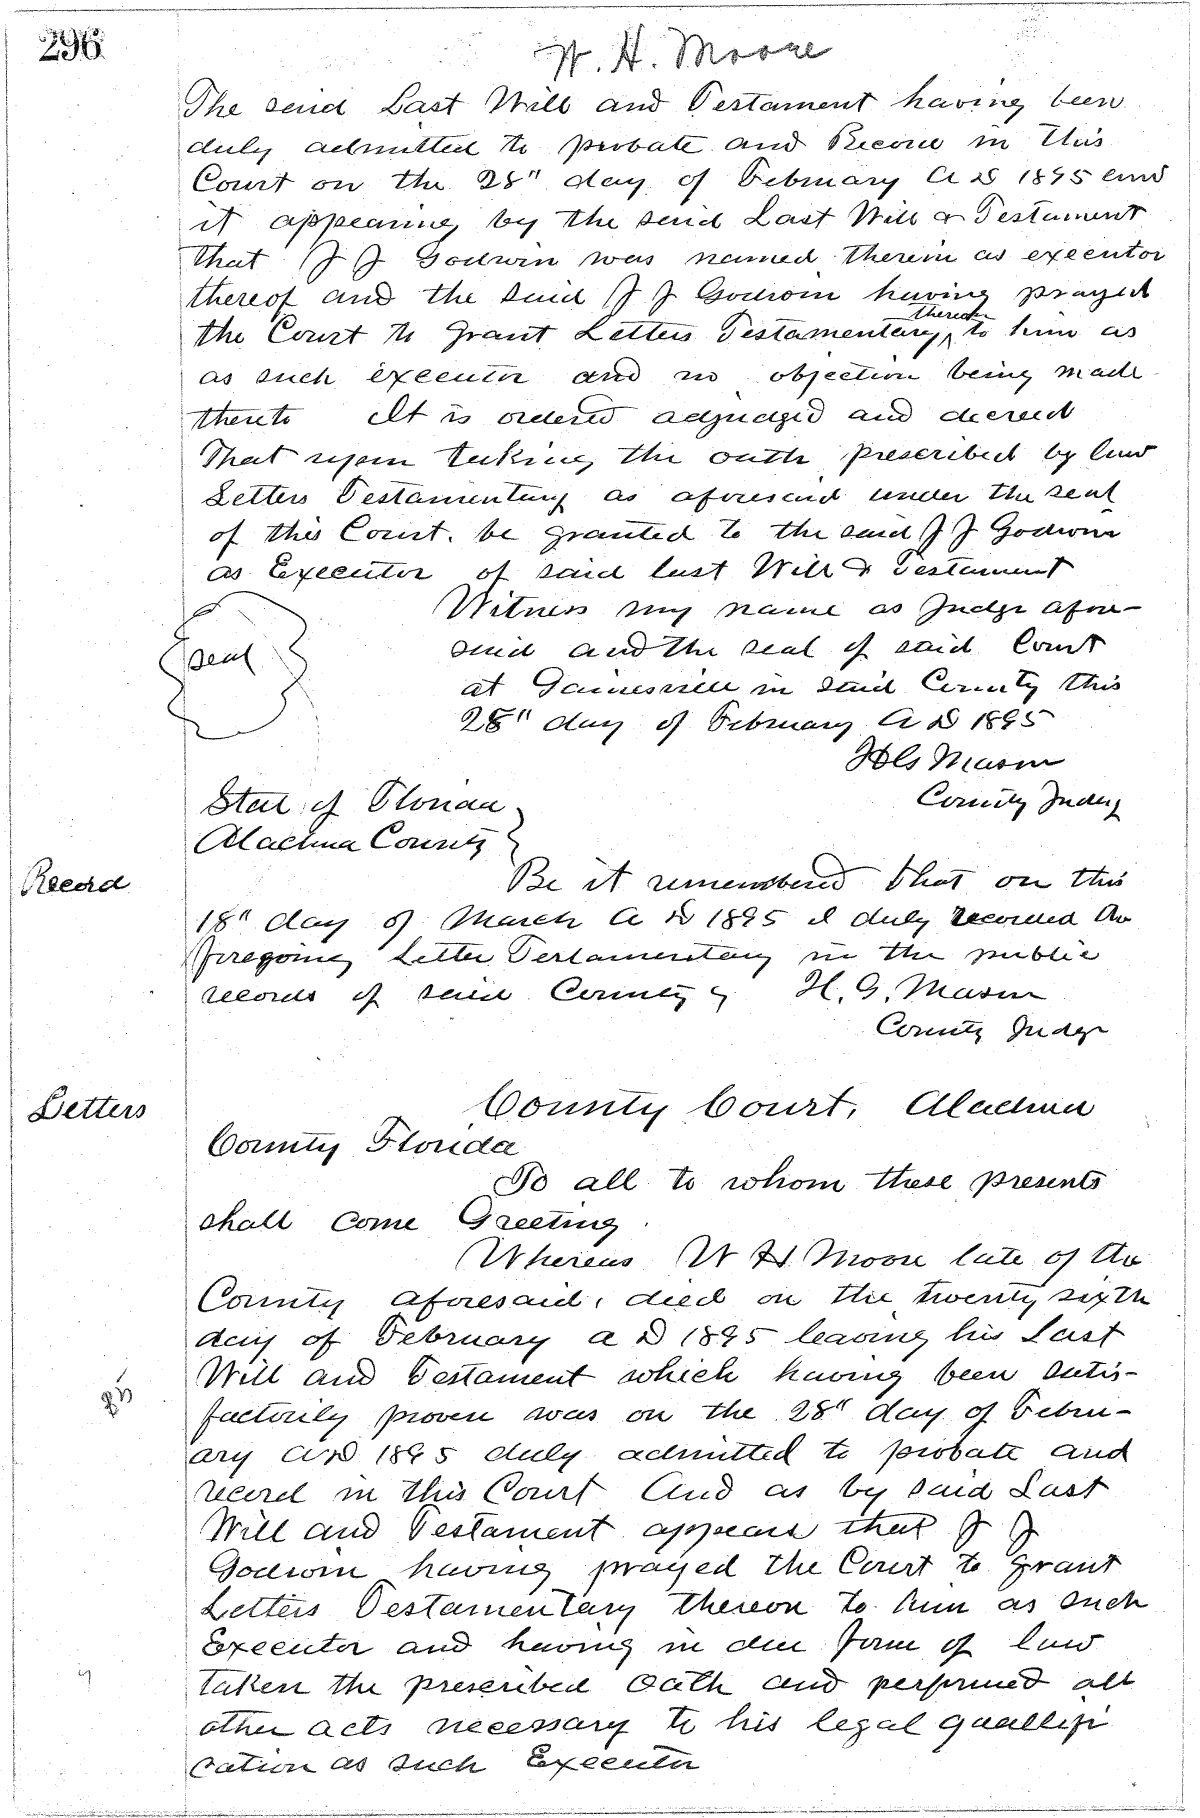 296
W. H. Moore
The said Last Will and Testament having been
duly admitted to probate and Record in this
Court on the 28" day of February A D 1895 and
it appearing by the said Last Will & Testament
that J J Godwin was named therein as executor
thereof and the said J J Godwin having prayed
thereon
the Court to Grant Letters Testamentary ^ to him as
as such executor and no objection being made
thereto It is ordered adjudged and decreed
That upon taking the oath prescribed by law
Letters Testamentary as aforesaid under the seal
of this Court. be granted to the said J J Godwin
as Executor of said last Will & Testament
Witness my name as Judge afore-
said and the seal of said Court
seal
at Gainesville in said County this
28" day of February A D 1895
Mason
County Judge
State of Florida
Alachua County
Record
Be it remembered that on this
18" day of March A D 1895 I duly recorded the
foregoing Letter Testamentary in the public
records of said County H. G. Mason
County Judge
Letters
County Court, Alachua
County Florida
To all to whom these presents
shall come Greeting.
Whereas W H Moore late of the
County aforesaid, died on the twenty sixth
day of February a D 1895 leaving his Last
Will and Testament which having been satis-
factorily proven was on the 28" day of Febru-
ary A D 1895 duly admitted to probate and
record in this Court And as by said Last
Will and Testament appears that J J
Godwin having prayed the Court to grant
Letters Testamentary thereon to him as such
Executor and having in due form of law
taken the prescribed Oath and performed all
other acts necessary to his legal quallifi
cation as such Executor